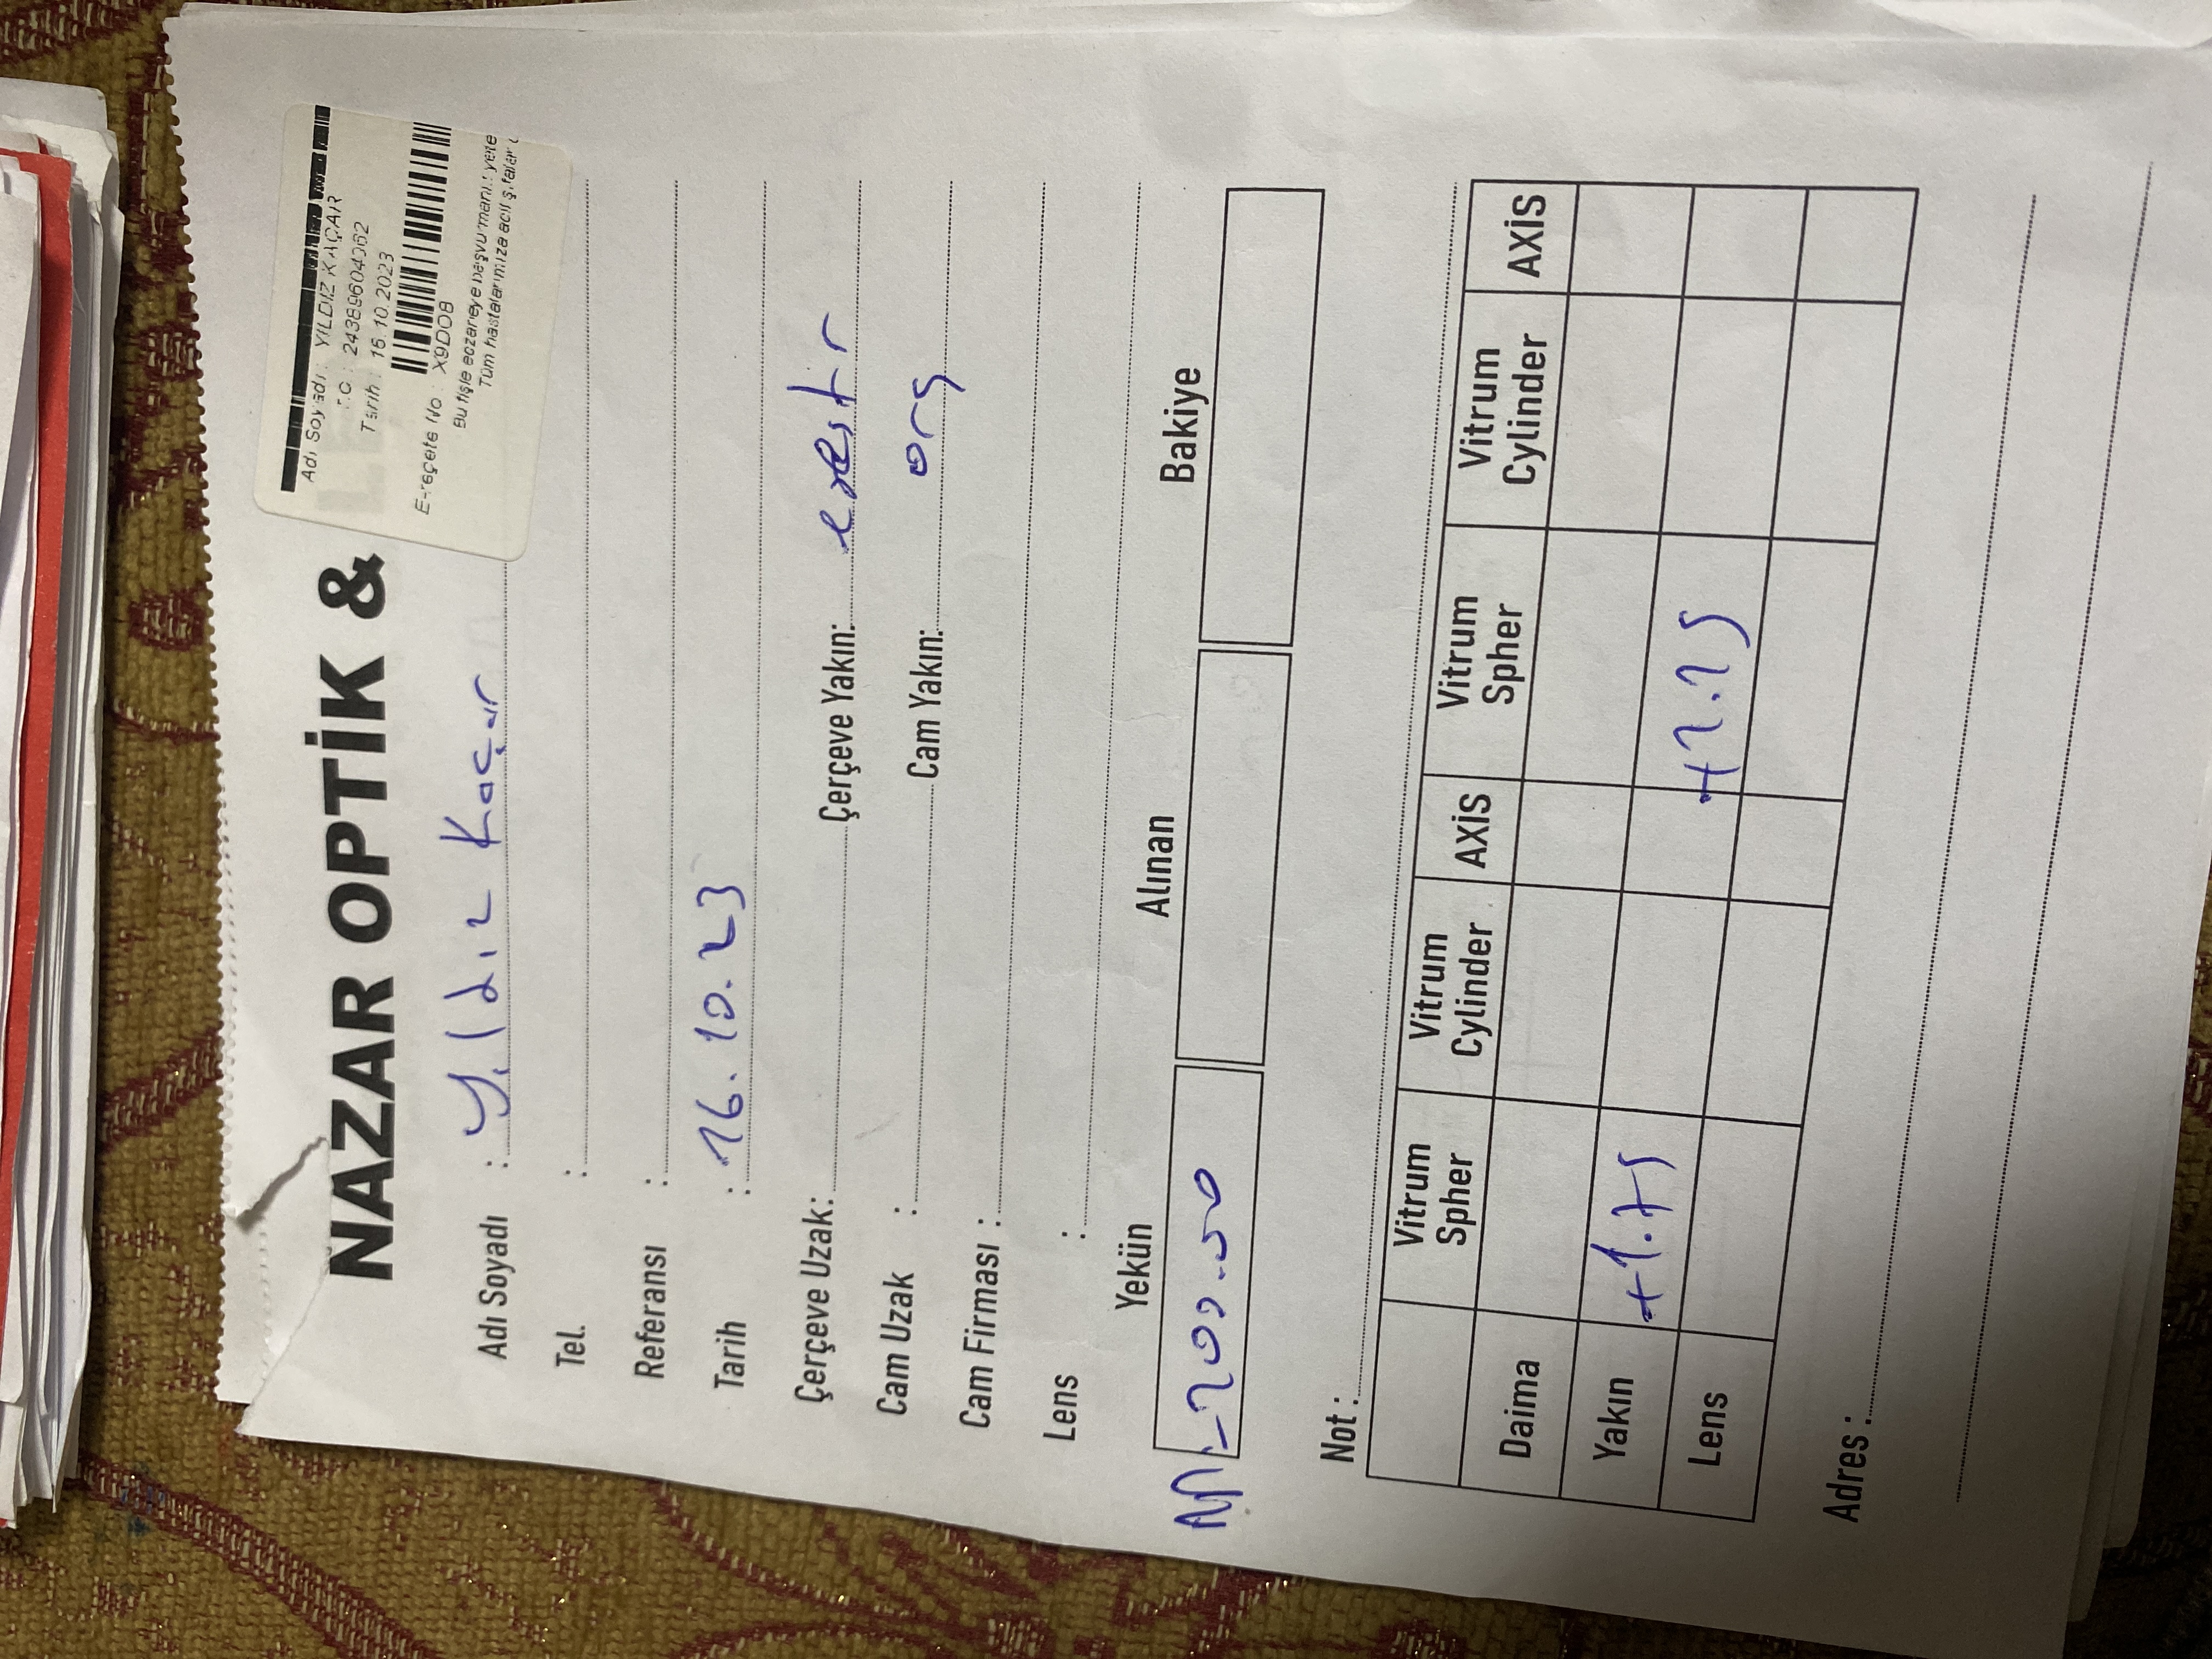 NAZAR OPTİK &
Adı Soyadı : YILDIZ KAÇAR
T.C : 24389604062
Tarih : 16.10.2023
E-reçete No : X9DO8
Bu fişle eczaneye başvurmanız yete
Tüm hastalarımıza acil şifalar
Adı Soyadı : Yıldız Kaçar
Tel. :
Referansı :
Tarih : 16.10.23
Çerçeve Uzak: Çerçeve Yakın:
Cam Uzak : Cam Yakın: org
Cam Firması :
Lens :
Yekün Alınan Bakiye
200.00
Not :
Vitrum Spher Vitrum Cylinder AXİS Vitrum Spher Vitrum Cylinder AXİS
Daima
Yakın +1.75 +2.25
Lens
Adres :